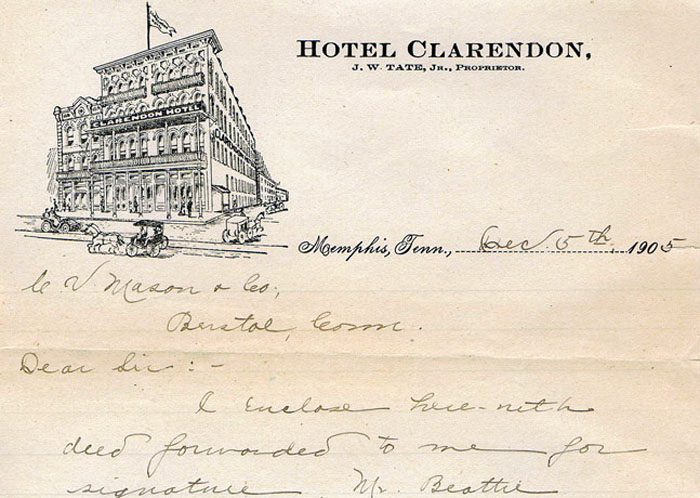 HOTEL CLARENDON,
J. W. TATE, JR., PROPRIETOR.
CLARENDON HOTEL
Memphis, Tenn., Dec 5th, 1905
C V Mason & Co,
Berstol, Conn.
Dear Sir: -
I enclose here-with
deed forwarded to me for
signature Mr. Beattie